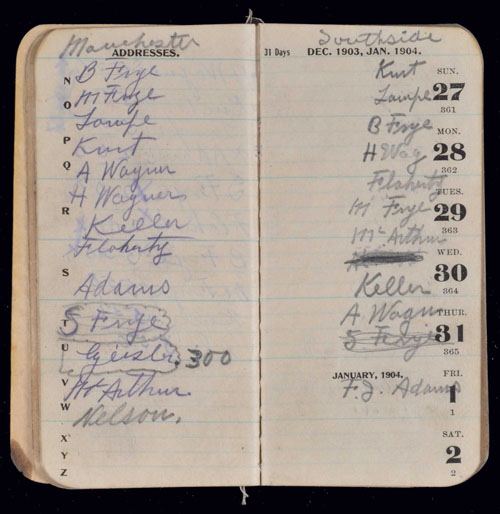 Manchester
ADDRESSES.
B Frye
M Frye
Lampe
Kurt
A Wagner
H Wagners
Keller
Flaherty
Adams
S Frye
Geister. 300
Mc Arthur
Nelson.
N
O
P
Q
R
S
T
U
V
W
X
Y
Z
Southside
31 Days DEC. 1903, JAN. 1904.
Kurt SUN.
Lampe 27
361
B Frye MON.
H Wag 28
362
Flaherty TUES.
M Frye 29
363
Mc Arthur WED.
30
Keller 364
A Wagner THUR.
S Frye 31
365
JANUARY, 1904. FRI.
F. J. Adams 1
1
SAT.
2
2